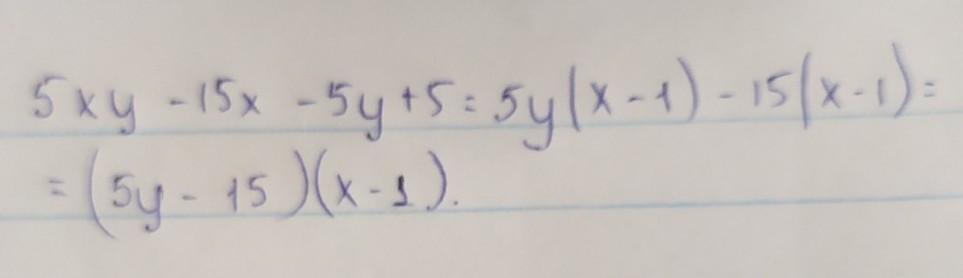 5xy - 15x - 5y + 5 = 5y(x - 1) - 15(x - 1) =
= (5y - 15)(x - 1).